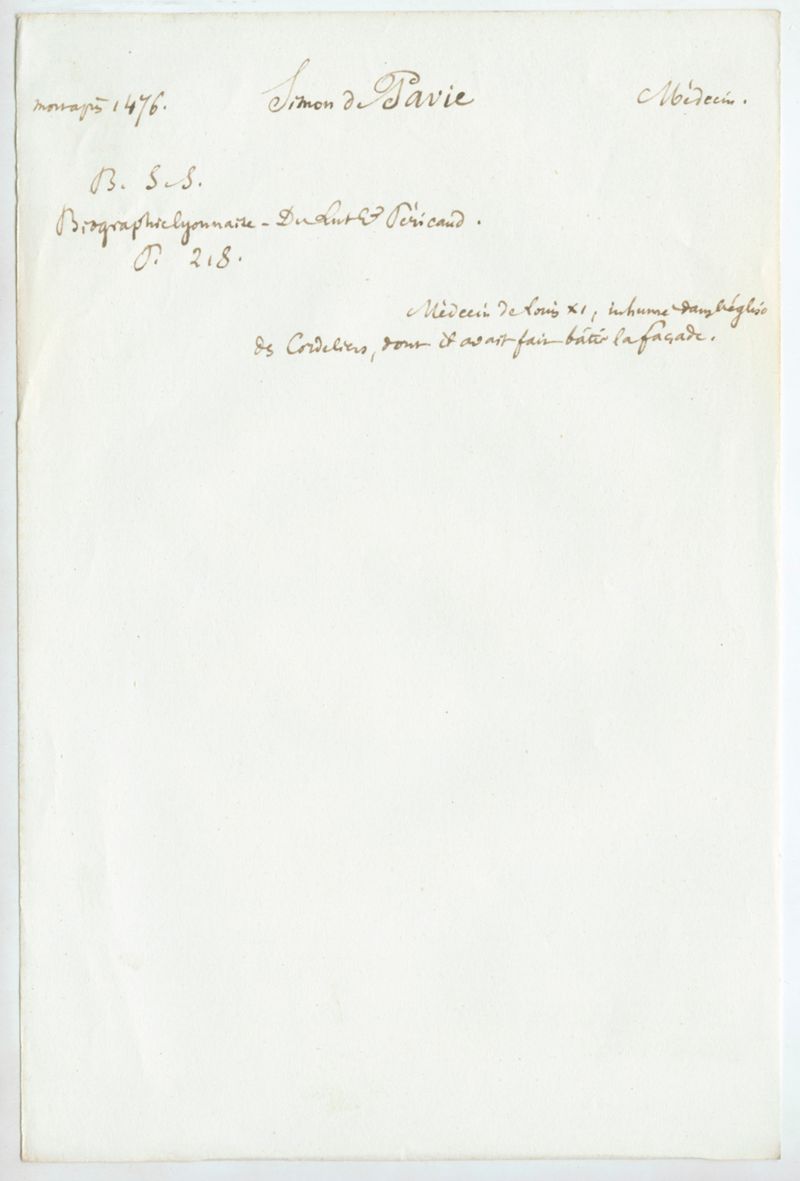 mort ap. 1476. Simon de Pavie Médecin.
B. S. S.
Biographie lyonnaise - Du Lut & Péricaud.
P. 218.
Médecin de Louis XI, inhumé dans l'église
des Cordeliers, dont il avait fait bâtir la façade.